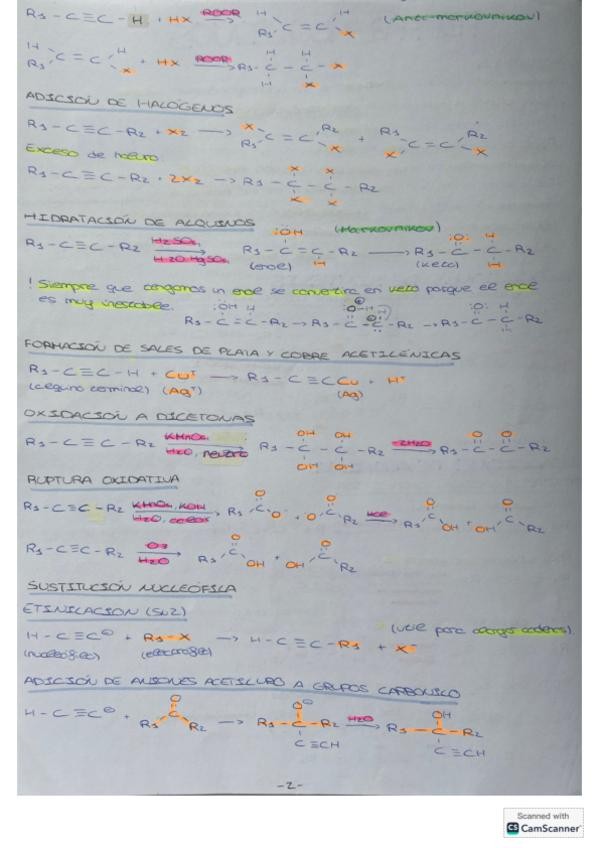 R₁-C≡C-H + HX ROOR → H R₁ C=C H X (Anti-markovnikov)
H R₁ C=C H X + HX ROOR → R₁-C-C-X H H H X
ADICIÓN DE HALÓGENOS
R₁-C≡C-R₂ + X₂ → X R₁ C=C R₂ X + R₁ X C=C R₂ X
Exceso de
R₁-C≡C-R₂ + 2X₂ → R₁-C-C-R₂ X X X X
HIDRATACIÓN DE ALQUINOS
R₁-C≡C-R₂ H₂SO₄ H₂O HgSO₄ → R₁-C=C-R₂ :ÖH H (enol) (Markovnikov) → R₁-C-C-R₂ :O: H H (keto)
! Siempre que tengamos un enol se convertirá en keto porque el enol
es muy inestable.
R₁-C=C-R₂ → R₁-C-C-R₂ → R₁-C-C-R₂
FORMACIÓN DE SALES DE PLATA Y COBRE ACETILÉNICAS
R₁-C≡C-H + Cu⁺ → R₁-C≡CCu + H⁺
(alquino terminal) (Ag⁺) (Ag)
OXIDACIÓN A DICETONAS
R₁-C≡C-R₂ KMnO₄ H₂O, neutro → R₁-C-C-R₂ OH OH OH OH -2H₂O → R₁-C-C-R₂ O O
RUPTURA OXIDATIVA
R₁-C≡C-R₂ KMnO₄, KOH H₂O, calor → R₁ C O O⁻ + ⁻O C O R₂ HCl → R₁ C O OH + OH C O R₂
R₁-C≡C-R₂ O₃ H₂O → R₁ C O OH + OH C O R₂
SUSTITUCIÓN NUCLEÓFILA
ETINILACIÓN (SN2)
H-C≡C⊖ + R₁-X → H-C≡C-R₁ + X⁻ (vale para alargar cadena)
(nucleófilo) (electrófilo)
ADICIÓN DE ANIONES ACETILURO A GRUPOS CARBONILO
H-C≡C⊖ + R₁ C O R₂ → R₁-C-R₂ O⊖ C≡CH H₂O → R₁-C-R₂ OH C≡CH
-2-
Scanned with
CS CamScanner